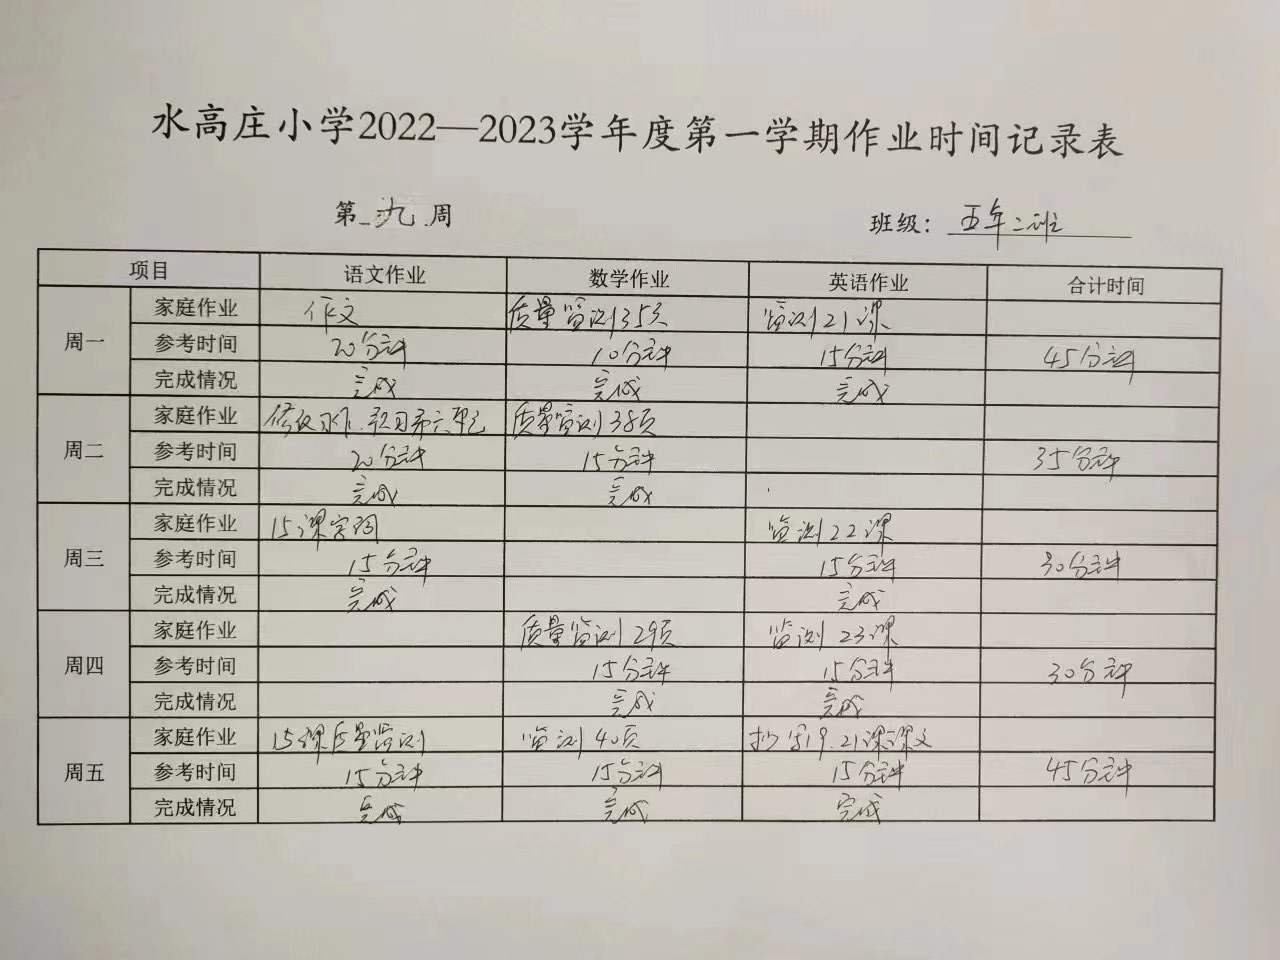 水高庄小学2022—2023学年度第一学期作业时间记录表
第 九 周 班级：五年二班
项目 语文作业 数学作业 英语作业 合计时间
周一 家庭作业 作文 质量监测35页 监测21课
参考时间 20分钟 10分钟 15分钟 45分钟
完成情况 完成 完成 完成
周二 家庭作业 修改习作.预习第六单元 质量监测38页
参考时间 20分钟 15分钟 35分钟
完成情况 完成 完成
周三 家庭作业 15课字词 监测22课
参考时间 15分钟 15分钟 30分钟
完成情况 完成 完成
周四 家庭作业 质量监测29页 监测23课
参考时间 15分钟 15分钟 30分钟
完成情况 完成 完成
周五 家庭作业 15课质量监测 监测40页 抄写19.21课课文
参考时间 15分钟 15分钟 15分钟 45分钟
完成情况 完成 完成 完成